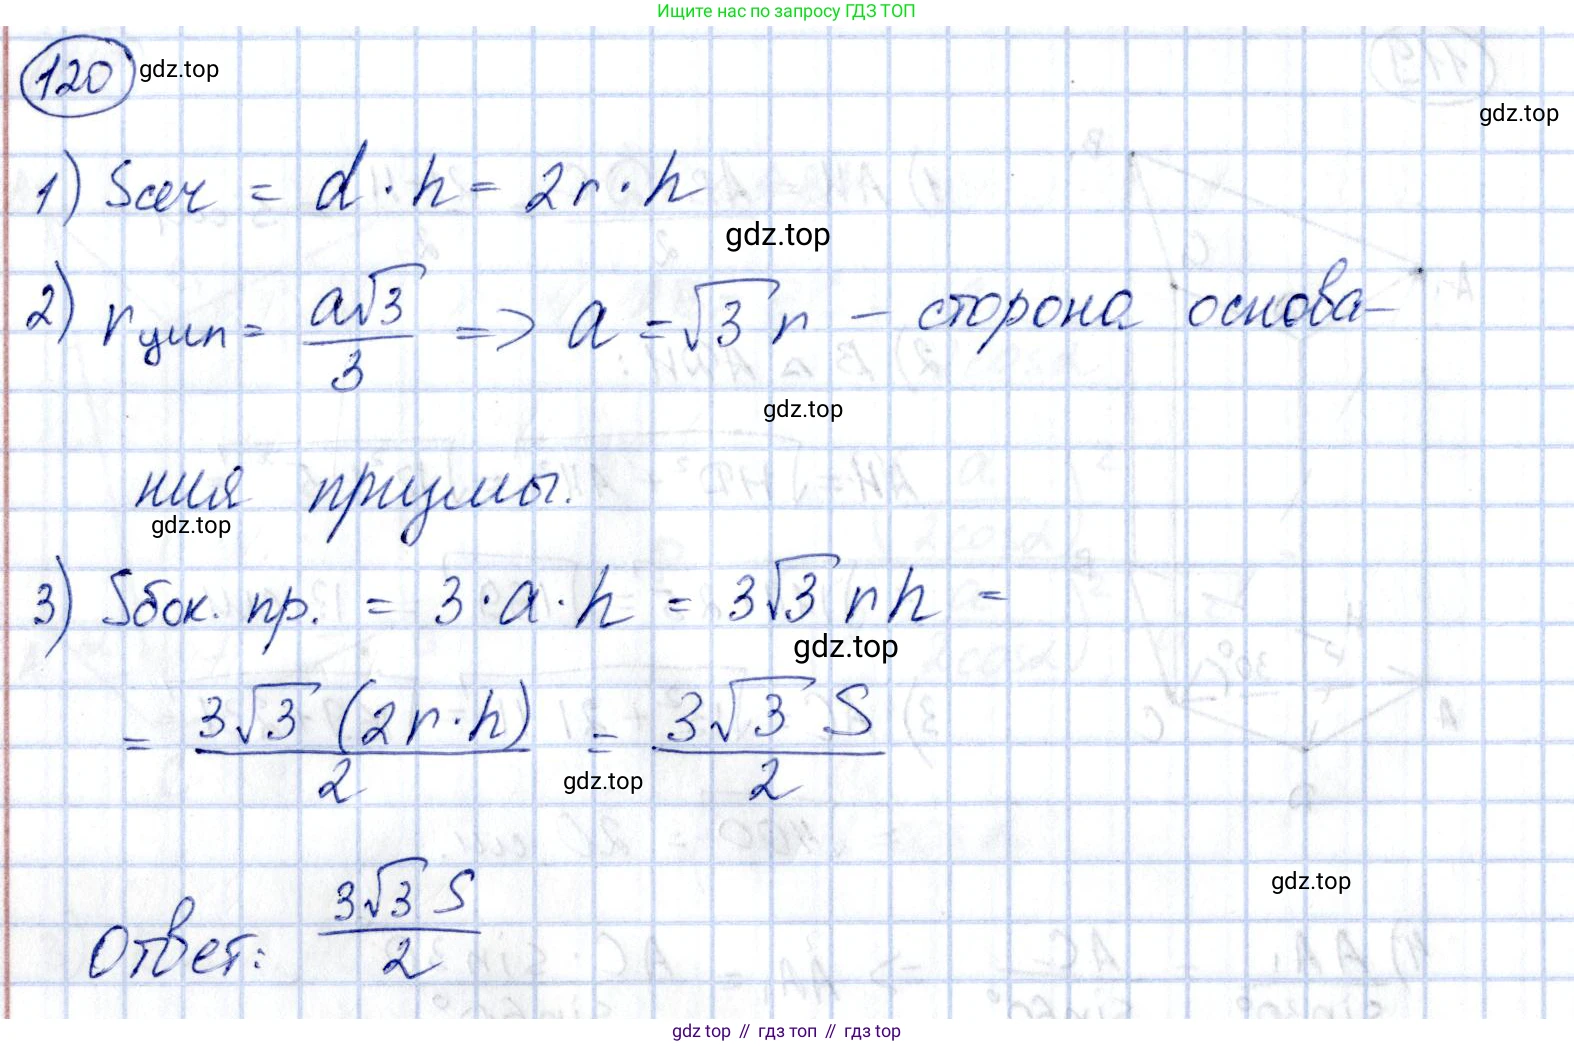 Ищите нас по запросу ГДЗ ТОП
120 gdz.top
gdz.top
1) Sсеч = d · h = 2r · h
gdz.top
2) rцил = a√3/3 => a = √3 r – сторона основа–
gdz.top
ния призмы.
gdz.top
3) Sбок. пр. = 3 · a · h = 3√3 r h =
gdz.top
= 3√3 (2r · h)/2 = 3√3 S/2
gdz.top
gdz.top
Ответ: 3√3 S/2
gdz.top // гдз топ // гдз top